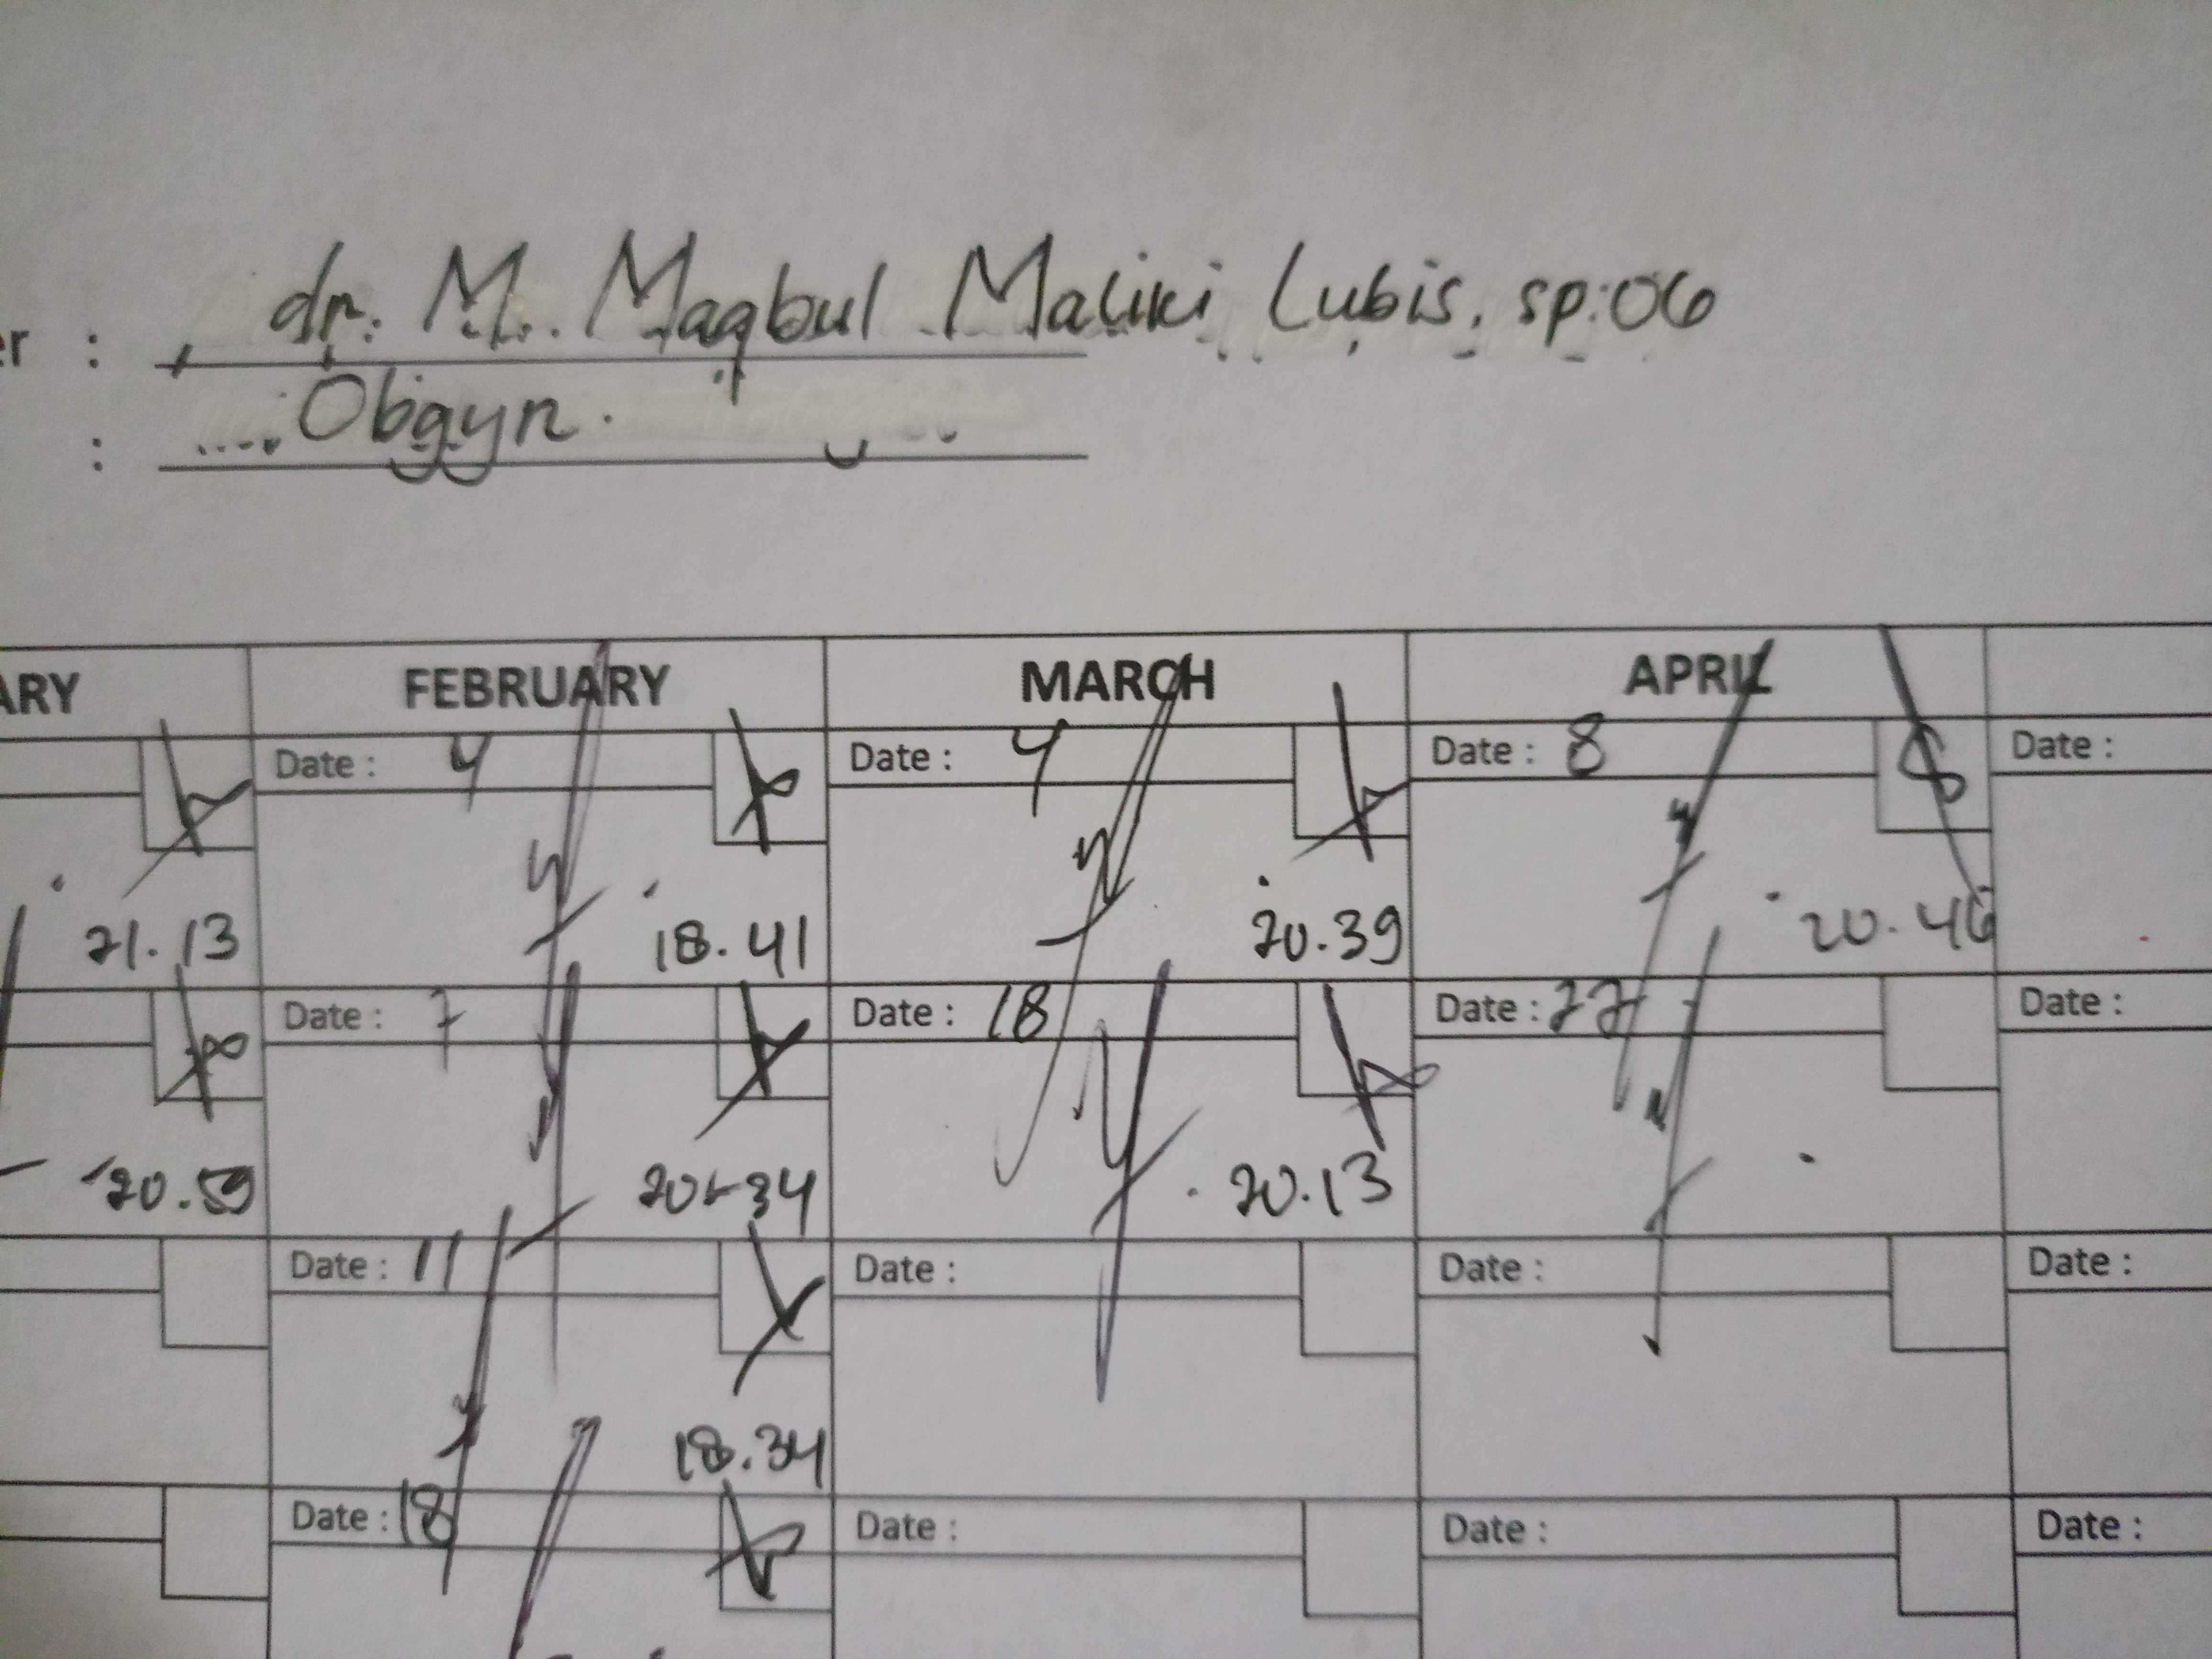 er : dr. M. Maqbul Maliki Lubis, sp.OG
: Obgyn.
ARY FEBRUARY MARCH APRIL
Date : 4 Date : 4 Date : 8 Date :
21.13 18.41 20.39 20.46
Date : 7 Date : 18 Date : 22 Date :
20.59 20.34 20.13
Date : 11 Date : Date : Date :
18.34
Date : 18 Date : Date : Date :